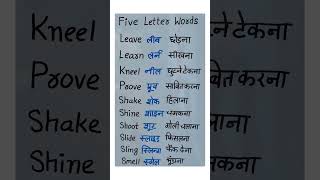 Five Letter Words
Leave लीव छोड़ना
Learn लर्न सीखना
Kneel नील घुटने टेकना
Prove प्रूव साबित करना
Shake शेक हिलाना
Shine शाइन चमकना
Shoot शूट गोली चलाना
Slide स्लाइड फिसलना
Sling स्लिन्ग फेंक देना
Smell स्मेल सूँघना